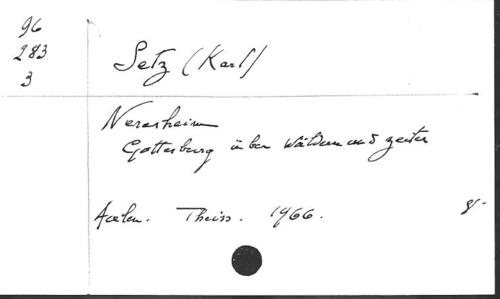 96
283
3
Setz (Karl)
Neresheim
Gottesburg über Wäldern und Zeiten
Aalen. Theiss. 1966. 8.